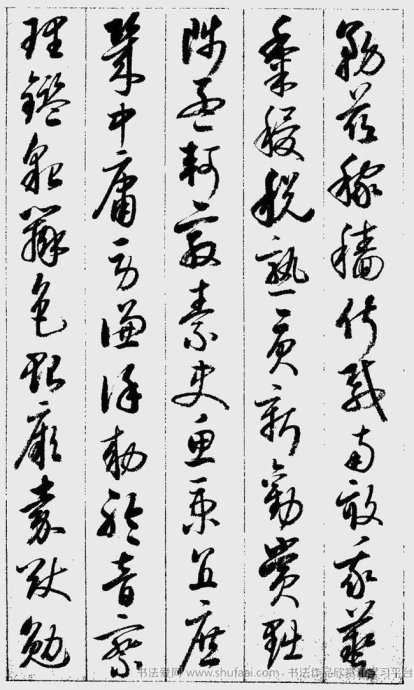 務茲稼穡俶載南畝我藝
黍稷稅熟貢新勸賞黜
陟孟軻敦素史魚秉直庶
幾中庸勞謙謹敕聆音察
理鑑貌辨色貽厥嘉猷勉
书法爱网 www.shufaai.com - 书法作品欣赏和学习平台